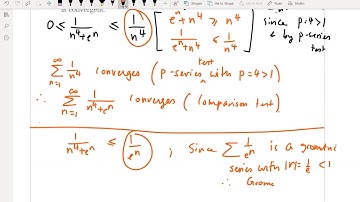 is convergent.
0 ≤ 1/(n⁴+eⁿ) ≤ 1/n⁴ [ eⁿ + n⁴ ≥ n⁴
1/(eⁿ+n⁴) ≤ 1/n⁴ ]
since p=4>1
& by p-series
test
∞ Σ n=1 1/n⁴ converges (p-series test with p=4>1)
∴ ∞ Σ n=1 1/(n⁴+eⁿ) converges (comparison test)
1/(n⁴+eⁿ) ≤ 1/eⁿ ; Since Σ 1/eⁿ is a geometric
series with |r|=1/e <1
∴ Geome